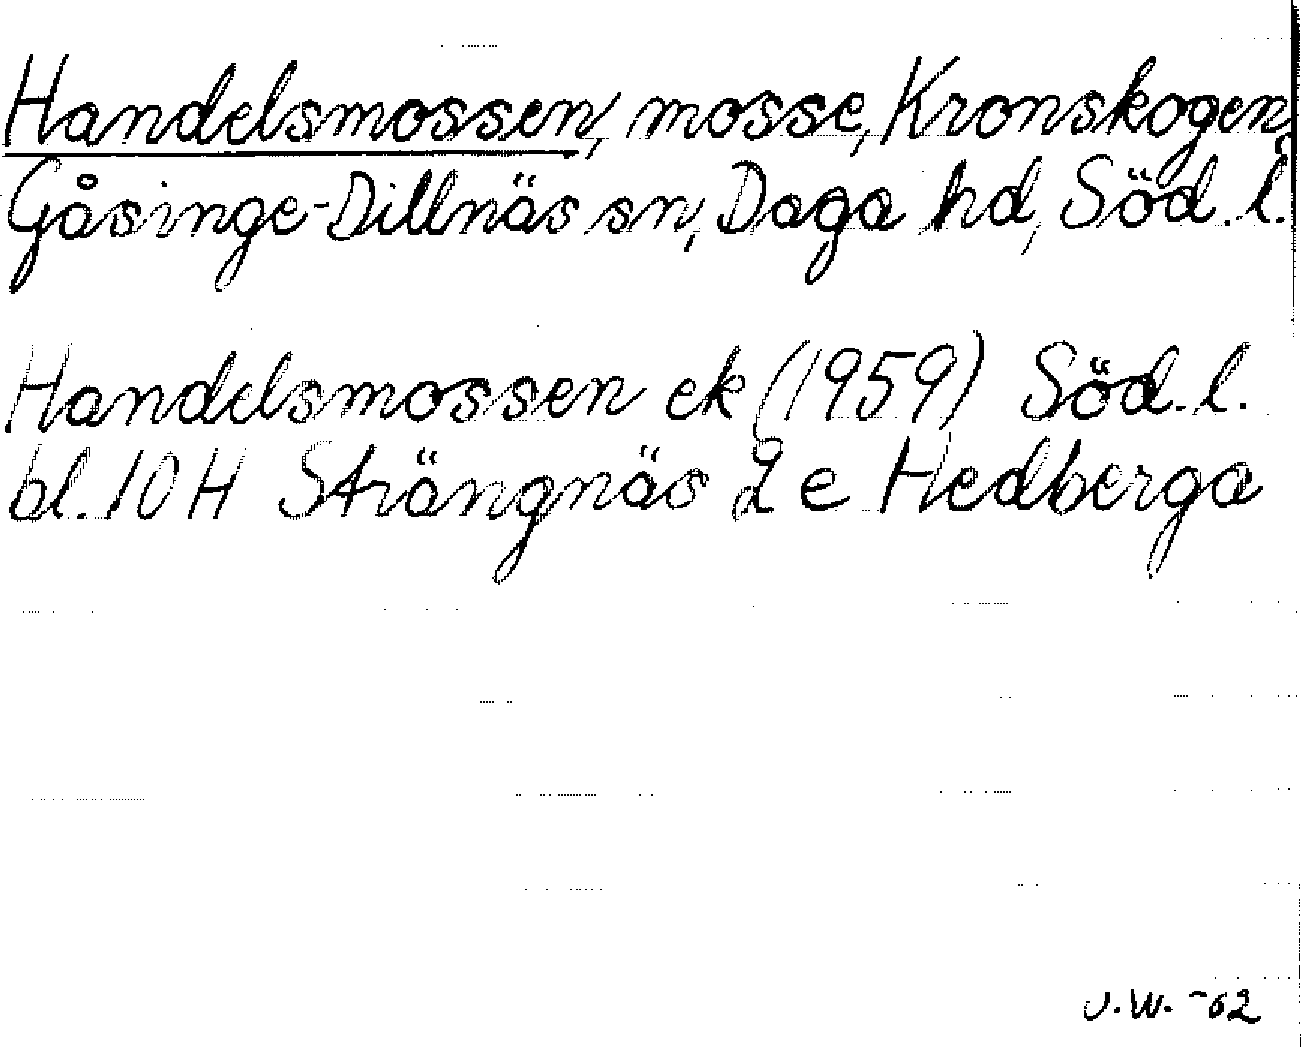 Handelsmossen, mosse, Kronskogen,
Gåsinge-Dillnäs sn, Daga hd, Söd. l.
Handelsmossen ek (1959) Söd. l.
bl. 10 H Strängnäs 2 e Hedberga
J.W. -62